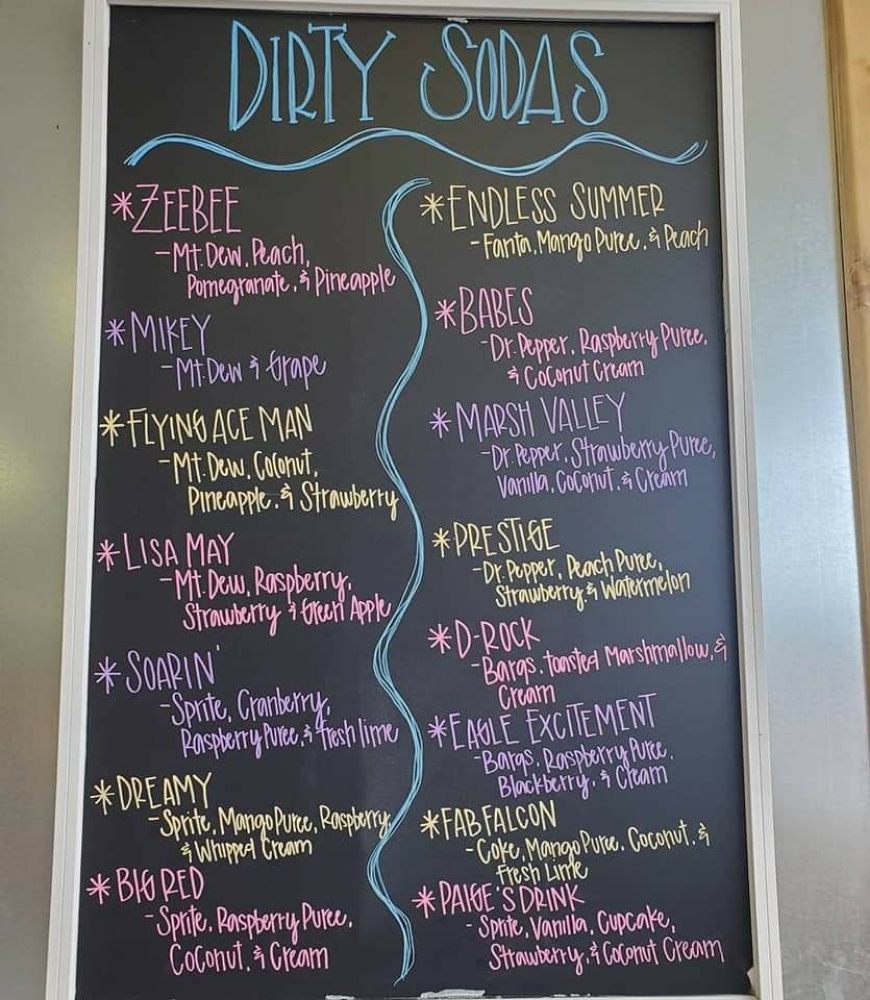 DIRTY SODAS
*ZEEBEE
-Mt. Dew, Peach,
Pomegranate, & Pineapple
*MIKEY
-Mt. Dew & Grape
*FLYING ACE MAN
-Mt. Dew, Coconut,
Pineapple, & Strawberry
*LISA MAY
-Mt. Dew, Raspberry,
Strawberry & Green Apple
*SOARIN'
-Sprite, Cranberry,
Raspberry Puree, & fresh lime
*DREAMY
-Sprite, Mango Puree, Raspberry,
& Whipped Cream
*BIG RED
-Sprite, Raspberry Puree,
Coconut, & Cream
*ENDLESS SUMMER
-Fanta, Mango Puree, & Peach
*BABES
-Dr. Pepper, Raspberry Puree,
& Coconut Cream
*MARSH VALLEY
-Dr. Pepper, Strawberry Puree,
Vanilla, Coconut, & Cream
*PRESTIGE
-Dr. Pepper, Peach Puree,
Strawberry, & Watermelon
*D-ROCK
-Barqs, toasted Marshmallow, &
Cream
*EAGLE EXCITEMENT
-Barqs, Raspberry Puree,
Blackberry, & Cream
*FAB FALCON
-Coke, Mango Puree, Coconut, &
Fresh Lime
*PAIGE'S DRINK
-Sprite, Vanilla, Cupcake,
Strawberry, & Coconut Cream